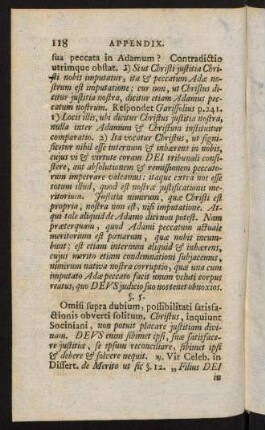 118 APPENDIX.
sua peccata in Adamum? Contradictio
utrimque obstat. 2) Sicut Christi justitia Chri-
sti nobis imputatur, ita & peccatum Adæ no-
strum est imputatione; cur non, ut Christus di-
citur justitia nostra, dicitur etiam Adamus pec-
catum nostrum. Respondet Garissolius p.241.
1) Locis illis, ubi dicitur Christus justitia nostra,
nulla inter Adamum & Christum instituitur
comparatio. 2) Ita vocatur Christus, ut signi-
ficetur nihil esse internum & inhærens in nobis,
cujus vi & virtute coram DEI tribunali consi-
stere, aut absolutionem & remissionem peccato-
rum impetrare valeamus: itaque extra nos esse
totum illud, quod est nostræ justificationis me-
ritorium. Justitia nimirum, quæ Christi est
propria, nostra non est, nisi imputatione. At-
qui tale aliquid de Adamo dici non potest. Nam
præterquam, quod Adami peccatum actuale
meritorium est pœnarum, quæ nobis incum-
bunt; est etiam internum aliquid & inhærens,
cujus merito etiam condemnationi subjacemus,
nimirum nativa nostra corruptio, quæ una cum
imputato Adæ peccato facit unum veluti corpus
reatus, quo DEVS judicio suo nos tenet obnoxios.
§. 5.
Omisi supra dubium, possibilitati satisfa-
ctionis obverti solitum. Christus, inquiunt
Sociniani, non potuit placare justitiam divi-
nam. DEVS enim sibimet ipsi, suæ satisface-
re justitiæ, se ipsum reconciliare, sibimet ipsi
& debere & solvere nequit. Vir Celeb. in
Dissert. de Merito ut sic §. 12. „Filius DEI
in